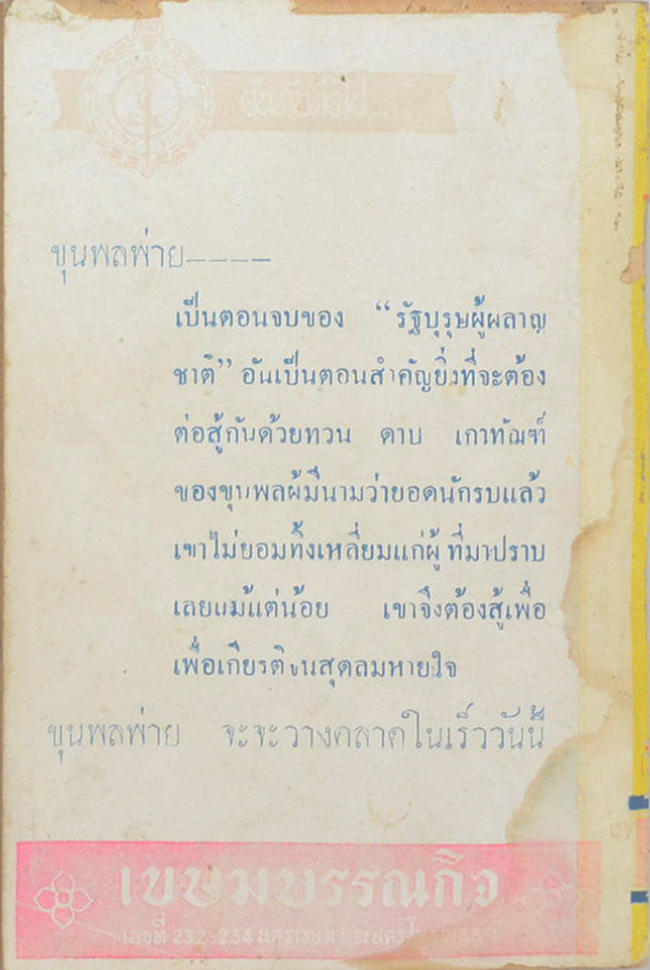 อันดับต่อไป....
ขุนพลพ่าย----
เป็นตอนจบของ “รัฐบุรุษผู้ผลาญ
ชาติ” อันเป็นตอนสำคัญยิ่งที่จะต้อง
ต่อสู้กันด้วยทวน ดาบ เกาทัณฑ์
ของขุนพลผู้มีนามว่ายอดนักรบแล้ว
เขาไม่ยอมทิ้งเหลี่ยมแก่ผู้ที่มาปราบ
เลยแม้แต่น้อย เขาจึงต้องสู้เพื่อ
เพื่อเกียรติจนสุดลมหายใจ
ขุนพลพ่าย จะจะวางตลาดในเร็ววันนี้
เขษมบรรณกิจ
เลขที่ 232-234 นครเขษม พระนคร